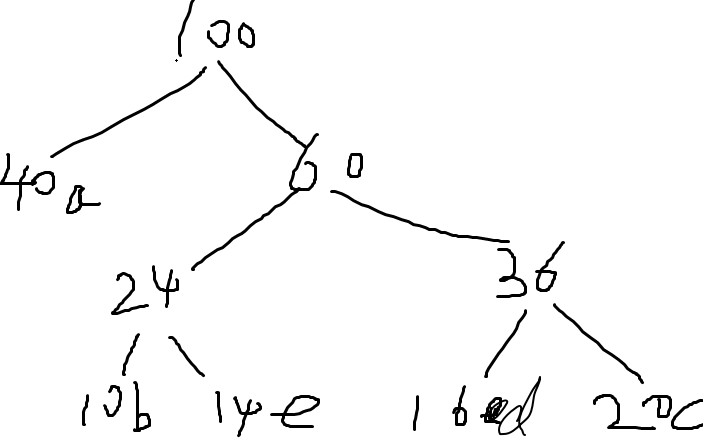 100
40a
60
24
36
10b
14e
16d
20c